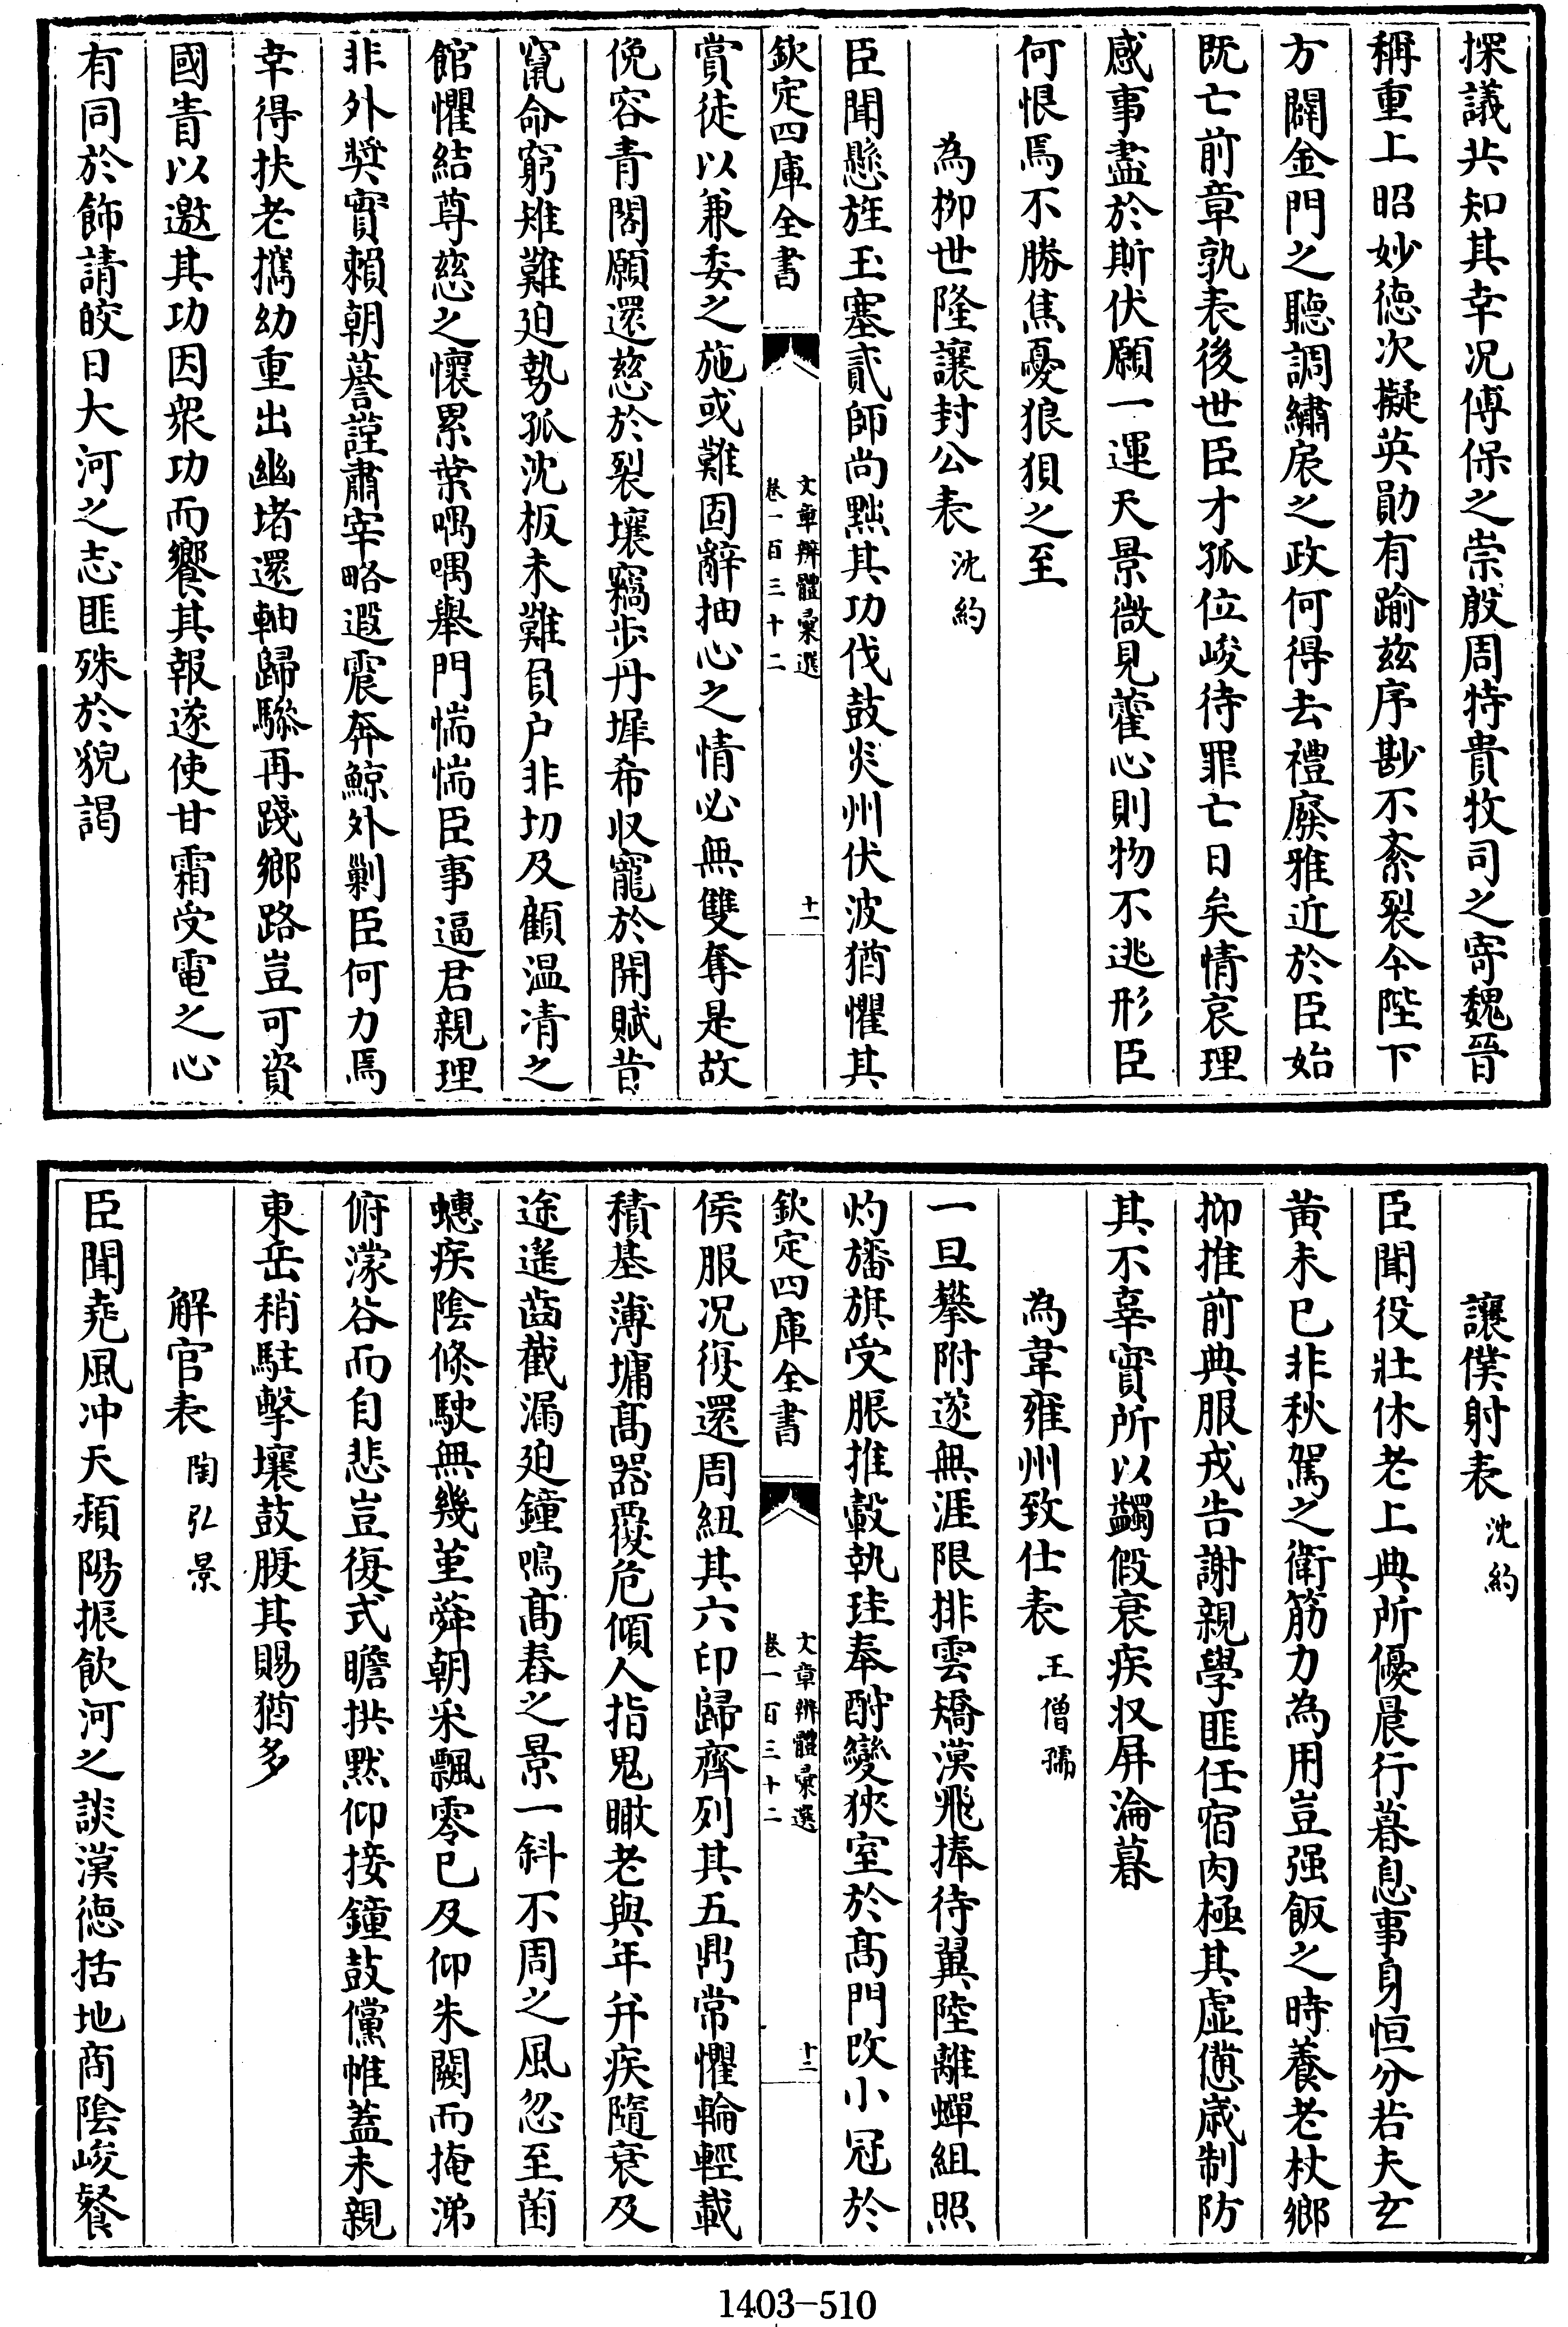 採議共知其幸况傅保之崇殷周特貴牧司之寄魏晉
稱重上昭妙徳次擬英勛有踰兹序尠不紊裂今陛下
方闢金門之聽調繡扆之政何得去禮廢雅近於臣始
既亡前章孰表後世臣才孤位峻待罪亡日矣情哀理
感事盡於斯伏願一運天景微見藿心則物不逃形臣
何恨焉不勝焦憂狼狽之至
為栁世隆讓封公表沈約
臣聞懸旌玉塞貳師尚黜其功伐鼓炎州伏波猶懼其
欽定四庫全書
文章辨體彚選
卷一百三十二
十一
賞徒以兼委之施或難固辭抽心之情必無雙奪是故
俛容青閣願還慈於裂壤竊步丹墀希収寵於開賦昔
竄命窮雉難廹勢孤沈板未難負户非切及顧温凊之
館懼結尊慈之懷累葉喁喁舉門惴惴臣事逼君親理
非外奬實賴朝蕚謹肅宰略遐震奔鯨外剿臣何力焉
幸得扶老攜幼重出幽堵還軸歸驂再踐鄉路豈可資
國眚以邀其功因衆功而饗其報遂使甘霜受電之心
有同於飾請皎日大河之志匪殊於貌謁
讓僕射表沈約
臣聞役壯休老上典所優晨行暮息事身恒分若夫玄
黃未已非秋駕之衛筋力為用豈强飯之時養老杖鄉
抑推前典服戎告謝親學匪任宿肉極其虛憊歲制防
其不辜實所以蠲假衰疾収屏淪暮
為韋雍州致仕表王僧孺
一旦攀附遂無涯限排雲矯漢飛捧待翼陸離蟬組照
灼旛旗受脤推轂執珪奉酎變狹室於髙門改小冠於
欽定四庫全書
文章辨體彚選
卷一百三十二
十二
侯服况復還周紐其六印歸齊列其五鼎常懼輪輕載
積基薄墉髙器覆危傾人指鬼瞰老與年并疾隨衰及
途遙齒截漏廹鐘鳴髙舂之景一斜不周之風忽至菌
蟪疾陰倐駛無幾堇蕣朝采飄零已及仰朱闕而掩涕
俯濛谷而自悲豈復式瞻拱默仰接鐘鼓儻帷蓋未親
東岳稍駐擊壤鼓腹其賜猶多
解官表陶弘景
臣聞堯風冲天潁陽振飲河之談漢徳括地商陰峻餐
1403-510